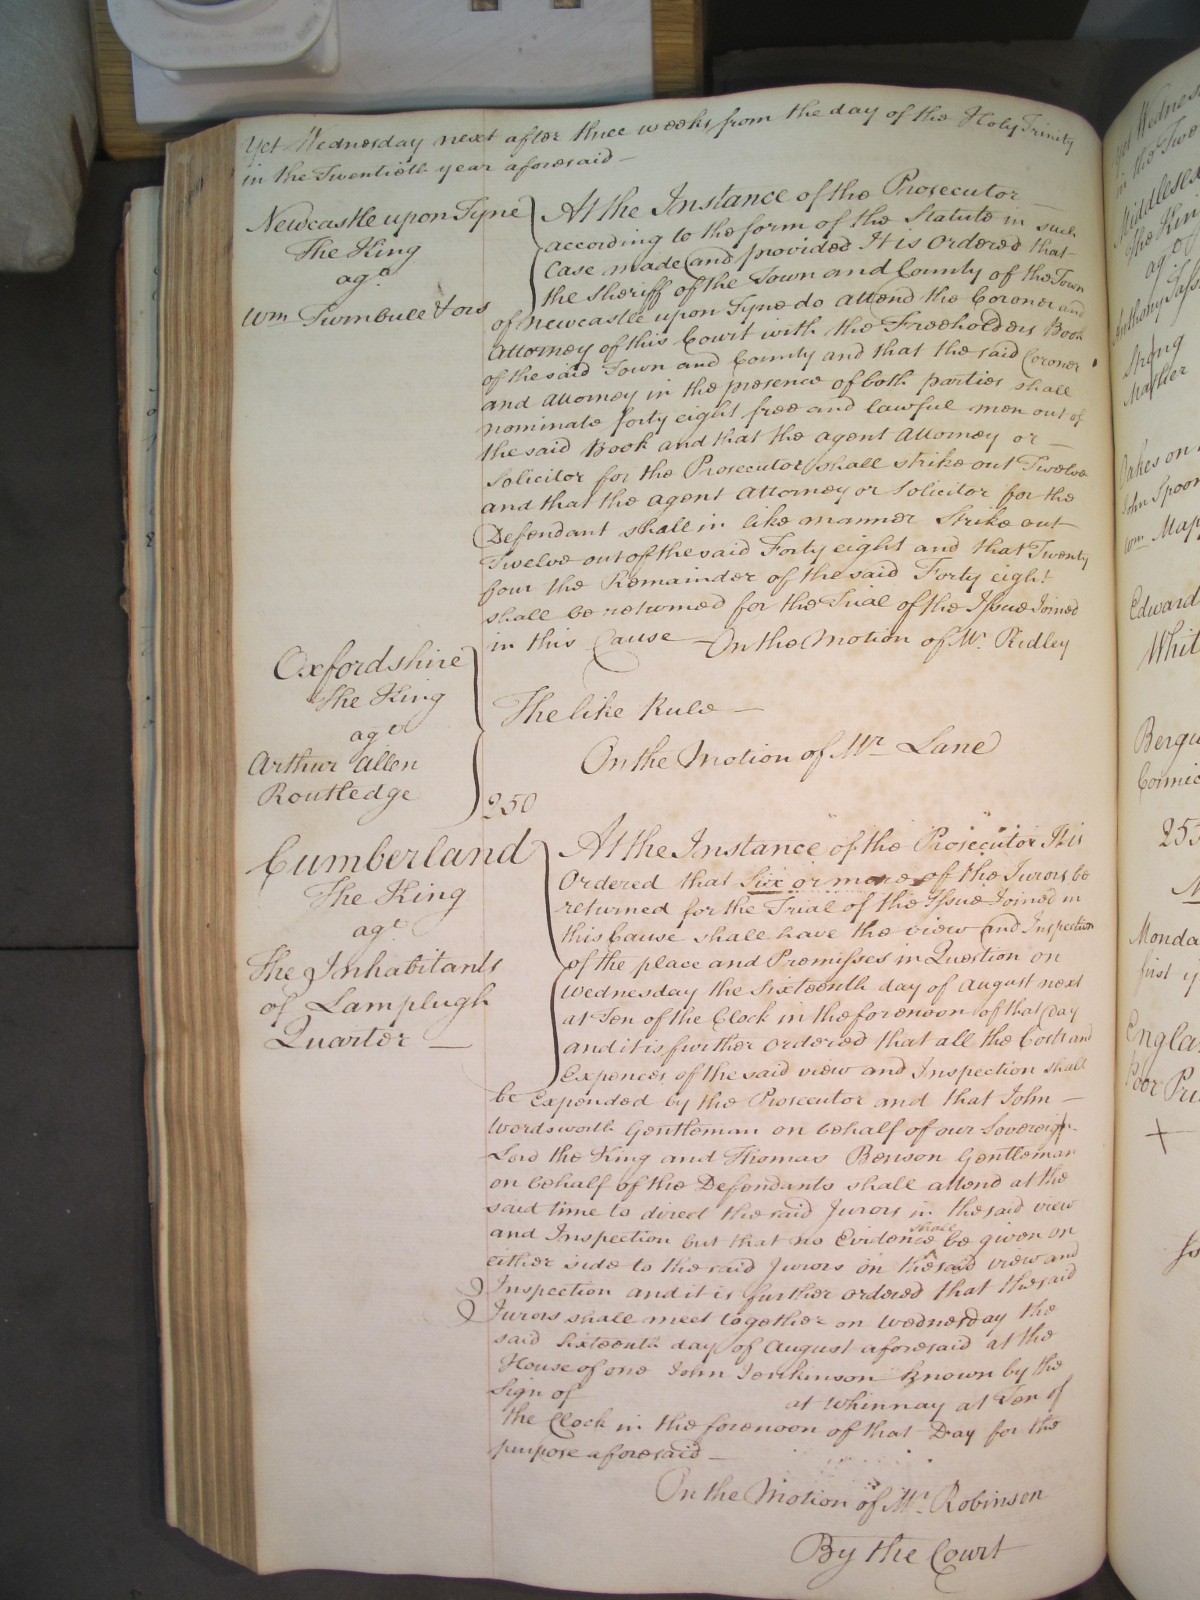 Yet Wednesday next after three weeks from the day of the Holy Trinity
in the Twentieth year aforesaid —
Newcastle upon Tyne
The King
agt
Wm Turnbull & ors
At the Instance of the Prosecutor
according to the form of the Statute in such
Case made and provided It is Ordered that
the Sheriff of the Town and County of the Town
of Newcastle upon Tyne do attend the Coroner and
Attorney of this Court with the Freeholders Book
of the said Town and County and that the said Coroner
and Attorney in the presence of both parties shall
nominate forty eight free and lawful men out of
the said Book and that the agent Attorney or —
Solicitor for the Prosecutor shall strike out Twelve
and that the agent Attorney or Solicitor for the
Defendant shall in like manner Strike out
Twelve out of the said Forty eight and that Twenty
four the Remainder of the said Forty eight
shall be returned for the Trial of the Issue Joined
in this Cause — On the Motion of Mr. Ridley
Oxfordshire
The King
agt
Arthur Allen
Routledge
The like Rule —
On the Motion of Mr Lane
250
Cumberland
The King
agt
The Inhabitants
of Lamplugh
Quarter —
At the Instance of the Prosecutor It is
Ordered that Six or more of the Jurors be
returned for the Trial of the Issue Joined in
this Cause shall have the view and Inspection
of the place and Premisses in Question on
Wednesday the Sixteenth day of August next
at Ten of the Clock in the forenoon of that day
and it is further ordered that all the Costs and
Expences of the said view and Inspection shall
be Expended by the Prosecutor and that John —
Wordsworth Gentleman on behalf of our Sovereign
Lord the King and Thomas Benson Gentleman
on behalf of the Defendants shall attend at the
said time to direct the said Jurors in the said view
and Inspection but that no Evidence shall be given on
either side to the said Jurors on the said view and
Inspection and it is further ordered that the said
Jurors shall meet together on Wednesday the
said Sixteenth day of August aforesaid at the
House of one John Jenkinson Known by the
Sign of at Whinnay at Ten of
the Clock in the forenoon of that Day for the
purpose aforesaid —
On the Motion of Mr. Robinson
By the Court
Middlesex
The Kin
agt
Anthony
Strong
Oakes on
John Spoon
Wm Map
Edward
Whit
Bergu
253
Monda
first
Englan
Poor Pri